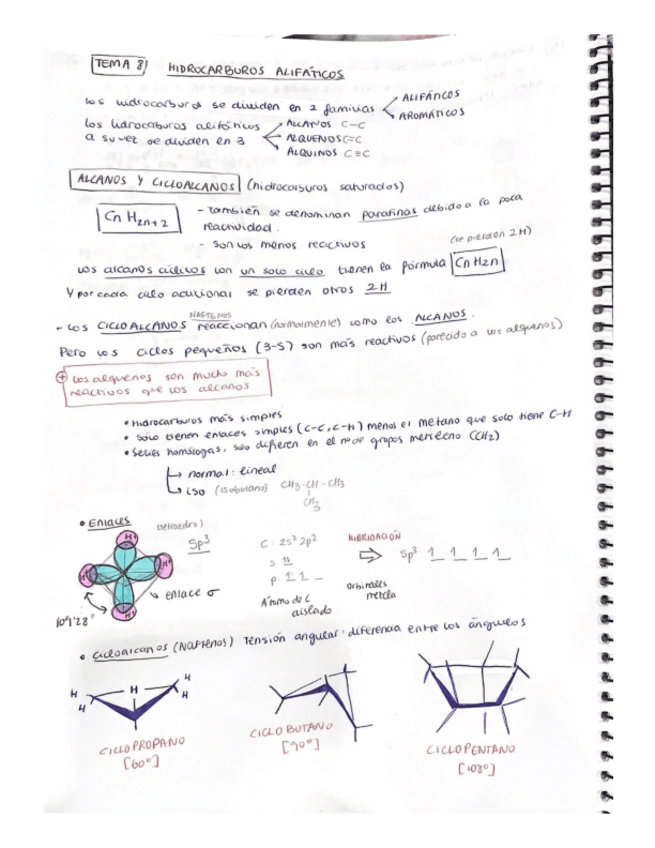 TEMA 8 HIDROCARBUROS ALIFÁTICOS
los hidrocarburos se dividen en 2 familias
ALIFÁTICOS
AROMÁTICOS
los hidrocarburos alifáticos
a su vez se dividen en 3
ALCANOS C-C
ALQUENOS C=C
ALQUINOS C≡C
ALCANOS Y CICLOALCANOS (hidrocarburos saturados)
Cn H2n+2
- también se denominan parafinas debido a la poca
reactividad.
- son los menos reactivos
(se pierden 2H)
Los alcanos cíclicos con un solo ciclo tienen la fórmula Cn H2n
Y por cada ciclo adicional se pierden otros 2H
NAFTENOS
- Los CICLOALCANOS reaccionan (normalmente) como los ALCANOS.
Pero los ciclos pequeños (3-5) son más reactivos (parecido a los alquenos)
+ Los alquenos son mucho más
reactivos que los alcanos
• hidrocarburos más simples
• sólo tienen enlaces simples (C-C, C-H) menos el metano que solo tiene C-H
• series homólogas, solo difieren en el nº de grupos metileno (CH2)
normal: lineal
iso (isobutano) CH3-CH-CH3
CH3
• ENLACES (tetraedro)
Sp3
enlace σ
109'28°
C: 2s² 2p²
s
p
Átomo de C
aislado
HIBRIDACIÓN
orbitales
mezcla
Sp3 1 1 1 1
• Cicloalcanos (Naftenos) Tensión angular: diferencia entre los ángulos
H H H H H
CICLOPROPANO
[60°]
CICLOBUTANO
[90°]
CICLOPENTANO
[108°]